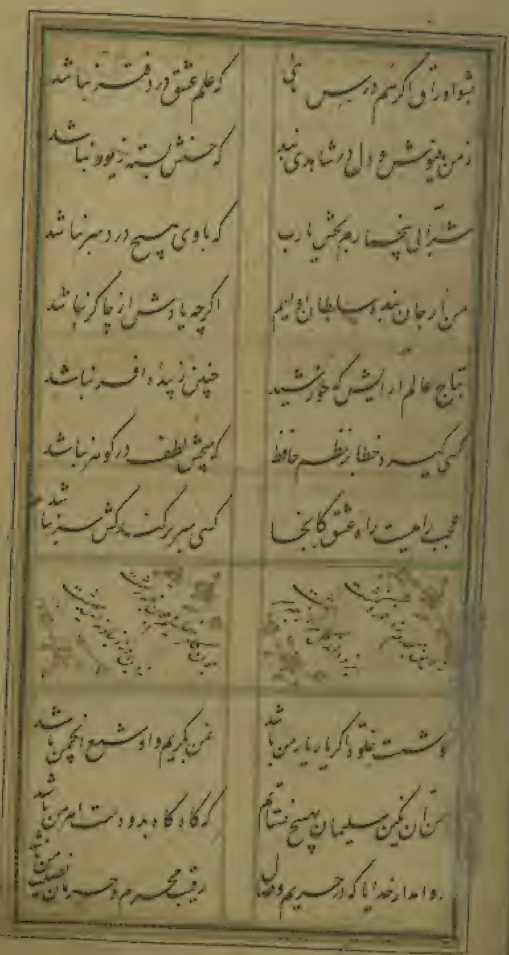 بشو اوراق اگر هم درس مایی که علم عشق در دفتر نباشد
ز من بنیوش و دل در شاهدی بند که حسنش بسته زیور نباشد
شرابی بی خمارم بخش یا رب که با وی هیچ درد سر نباشد
من از جان بنده سلطان اویسم اگرچه یادش از چاکر نباشد
بتاج عالم آرایش که خورشید چنین زیبنده افسر نباشد
کسی گیرد خطا بر نظم حافظ که هیچش لطف در گوهر نباشد
عجب راهیست راه عشق کانجا کسی سر برکند کش سر نباشد
خوشست خلوت اگر یار یار من باشد نه من بگریم و او شمع انجمن باشد
من آن نگین سلیمان بهیچ نستانم که گاه گاه برو دست اهرمن باشد
روا مدار خدایا که در حریم وصال رقیب محرم و حرمان نصیب من باشد